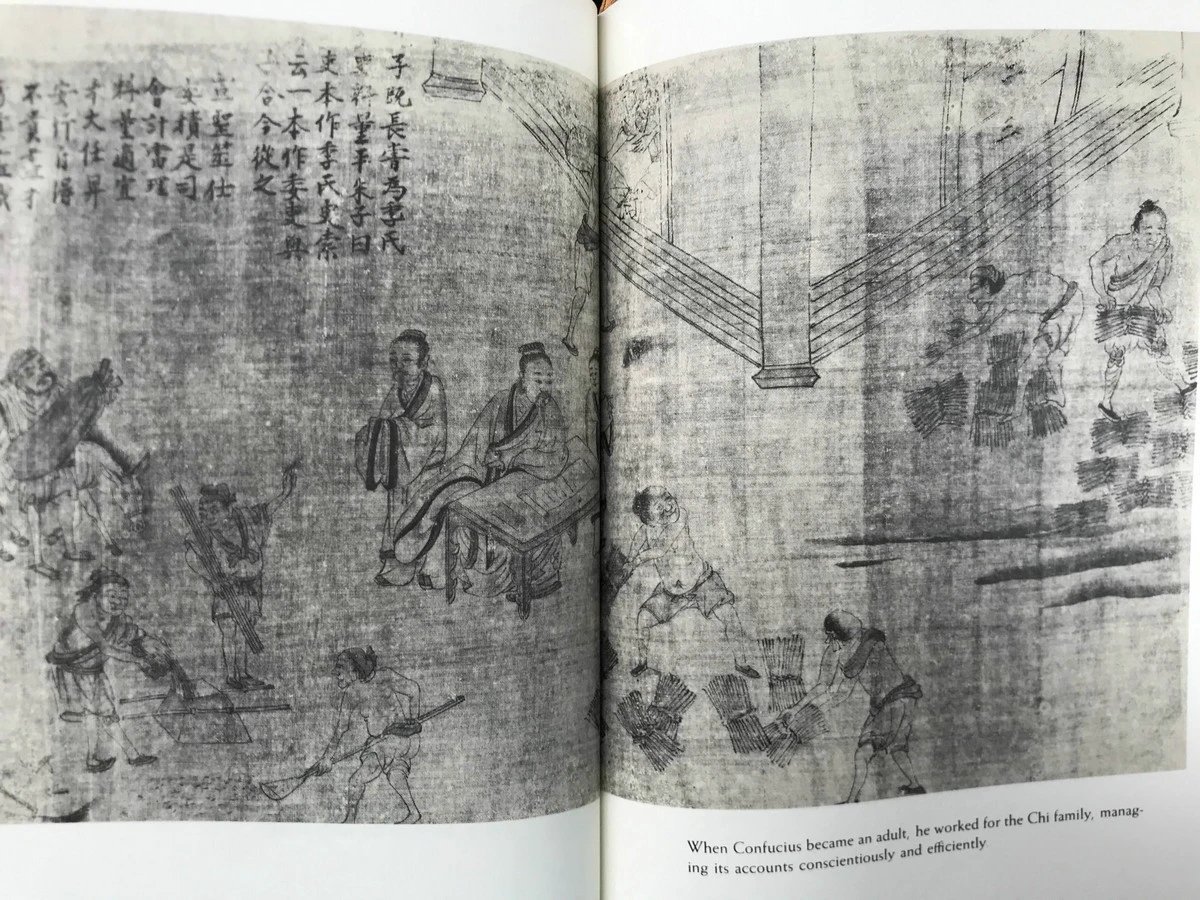 子既長嘗為季氏
吏料量平朱子曰
吏本作季氏史索
云一本作委吏與
合今從之
聖筮仕
委積是司
會計當理
料量適宜
才大任卑
安行自得
不責
When Confucius became an adult, he worked for the Chi family, manag-
ing its accounts conscientiously and efficiently